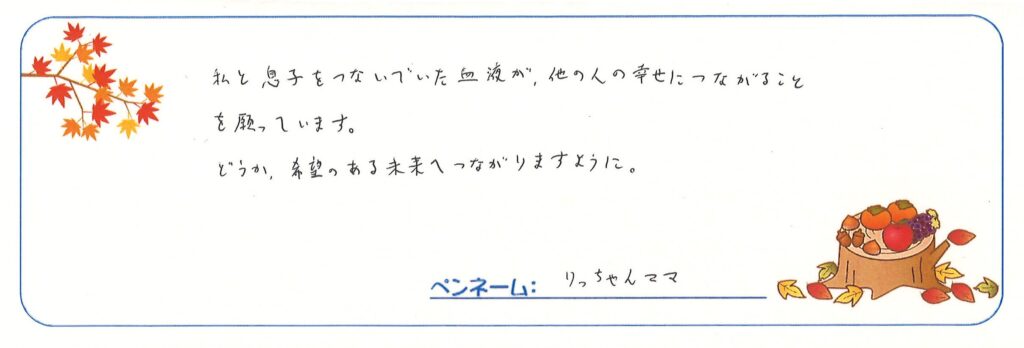 私と息子をつないでいた血液が、他の人の幸せにつながること
を願っています。
どうか、希望のある未来へつながりますように。
ペンネーム: りっちゃんママ